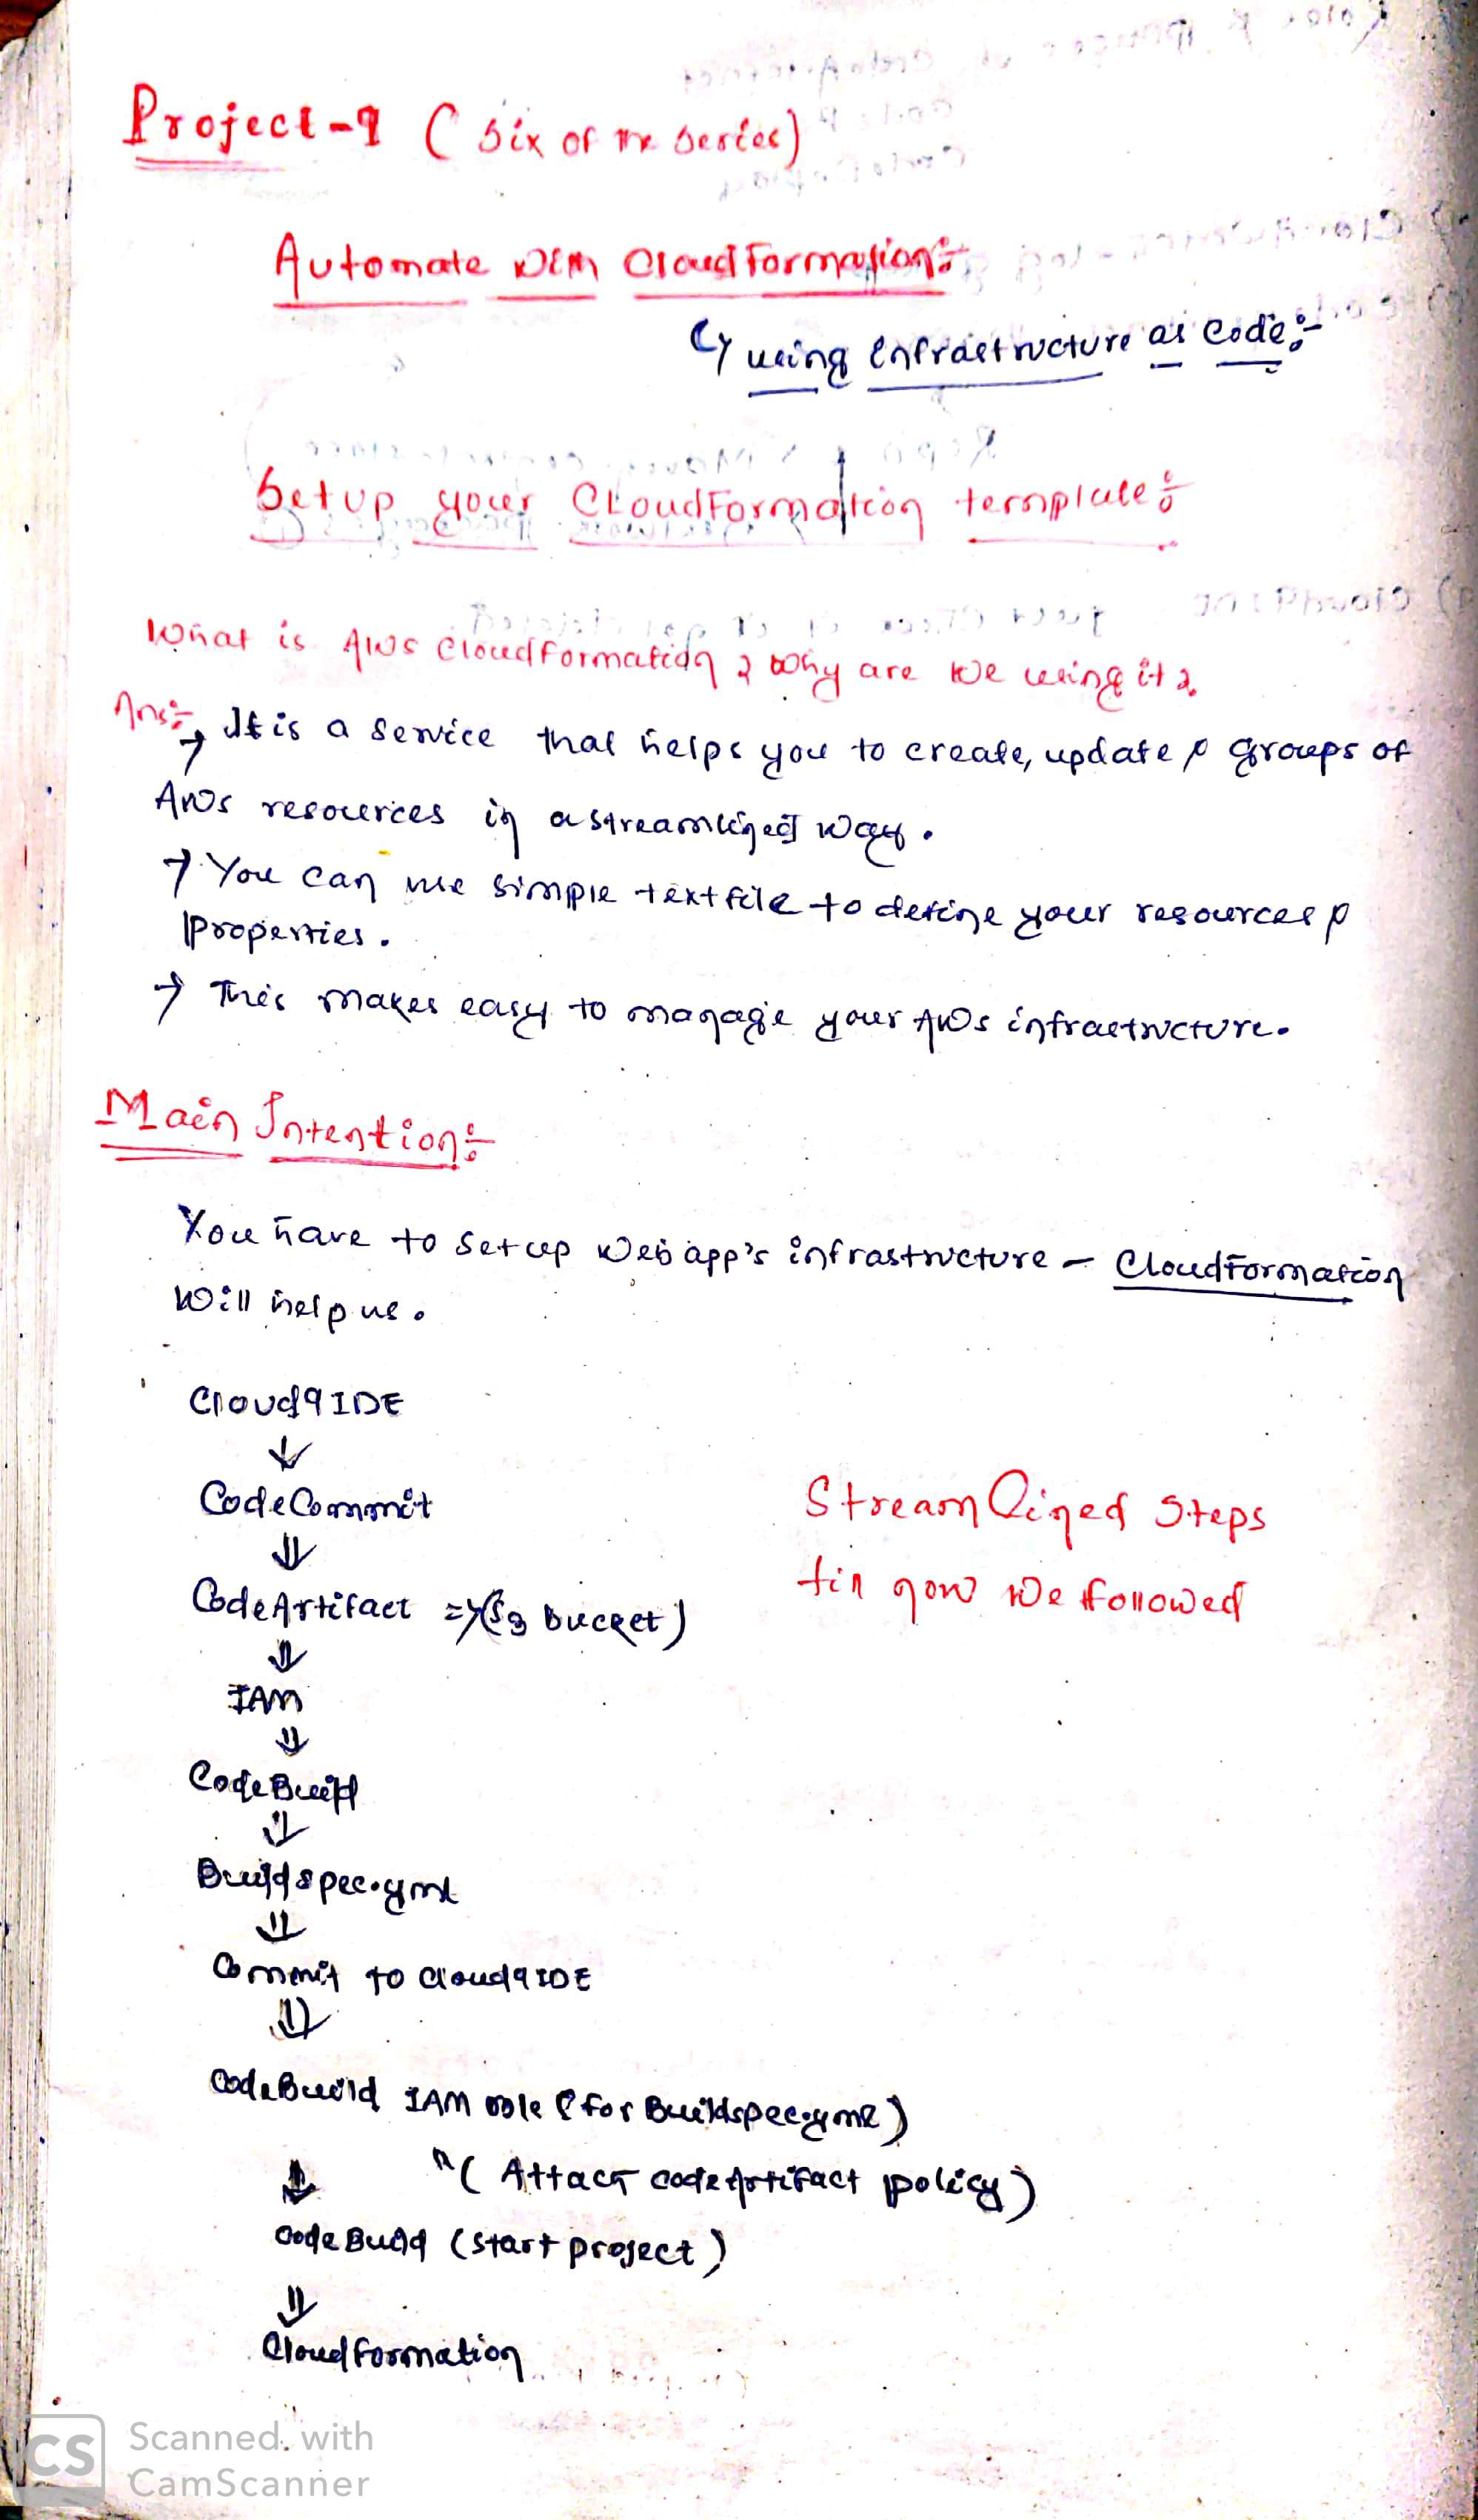 Project-9 (Six of the Series)
Automate with CloudFormation:-
↳ using Infrastructure as Code:-
Setup your CloudFormation template:
What is AWS CloudFormation & Why are We using it?
Ans:- → It is a Service that helps you to create, update & groups of
AWS resources in a streamlined way.
→ You can use simple text file to define your resources &
Properties.
→ This makes easy to manage your AWS infrastructure.
Main Intention:-
You have to setup Web app's infrastructure - CloudFormation
Will help us.
Cloud9 IDE
↓
CodeCommit
⇓
CodeArtifact => (S3 bucket)
⇓
IAM
⇓
CodeBuild
⇓
Buildspec.yml
⇓
Commit to Cloud9 IDE
⇓
CodeBuild IAM role (for Buildspec.yml)
" (Attach codeArtifact policy)
⇓
CodeBuild (start project)
⇓
Cloudformation
Streamlined Steps
till now We followed
CS
Scanned with
CamScanner